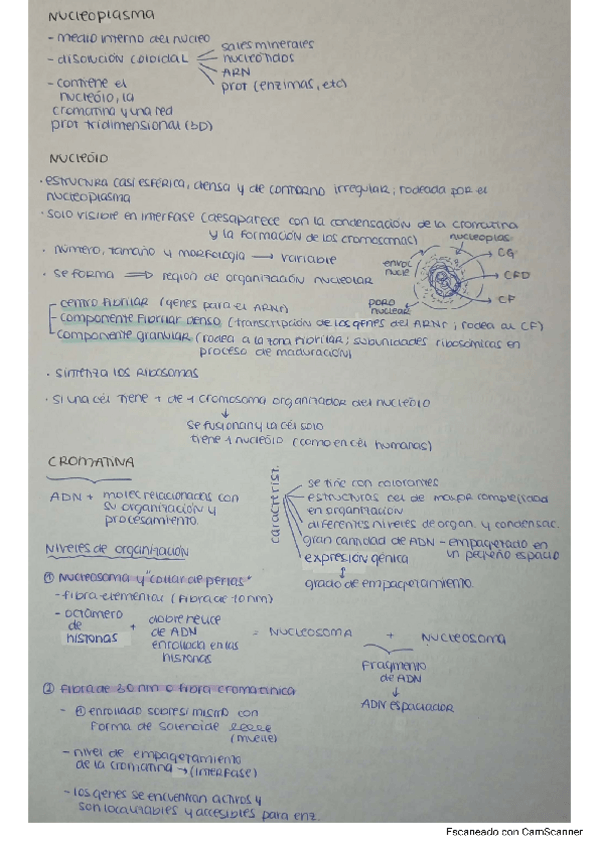 Nucleoplasma
- medio interno del núcleo
- disolución coloidal
sales minerales
nucleótidos
ARN
prot (enzimas, etc)
- contiene el
nucleólo, la
cromatina y una red
prot tridimensional (3D)
Nucleolo
· estructura casi esférica, densa y de contorno irregular; rodeada por el
nucleoplasma
· solo visible en interfase (desaparece con la condensación de la cromatina
y la formación de los cromosomas)
· número, tamaño y morfología → variable
· se forma ⟹ región de organización nucleolar
nucleoplas.
envol.
nucle
poro
nuclear
CG
CFD
CF
- centro fibrilar (genes para el ARNr)
- componente fibrilar denso (transcripción de los genes del ARNr; rodea al CF)
- componente granular (rodea a la zona fibrilar; subunidades ribosómicas en
proceso de maduración)
· sintetiza los ribosomas
· si una cél tiene + de 1 cromosoma organizador del nucleólo
↓
se fusionan y la cél solo
tiene 1 nucleólo (como en cél humanas)
CROMATINA
ADN + moléc relacionadas con
su organización y
procesamiento.
característ.
se tiñe con colorantes
estructuras cel de mayor complejidad
en organización
diferentes niveles de organ. y condensac.
gran cantidad de ADN - empaquetado en
un pequeño espacio
expresión génica
↕
grado de empaquetamiento.
Niveles de organización
① Nucleosoma y "collar de perlas"
- fibra elemental (fibra de 10nm)
- octámero
de
histonas
+
doble hélice
de ADN
enrollada en las
histonas
= NUCLEOSOMA + NUCLEOSOMA
fragmento
de ADN
↓
ADN espaciador
② Fibra de 30nm o fibra cromatínica
- ① enrollado sobre sí mismo con
forma de solenoide
(muelle)
- nivel de empaquetamiento
de la cromatina → (interfase)
- los genes se encuentran activos y
son localizables y accesibles para enz.
Escaneado con CamScanner